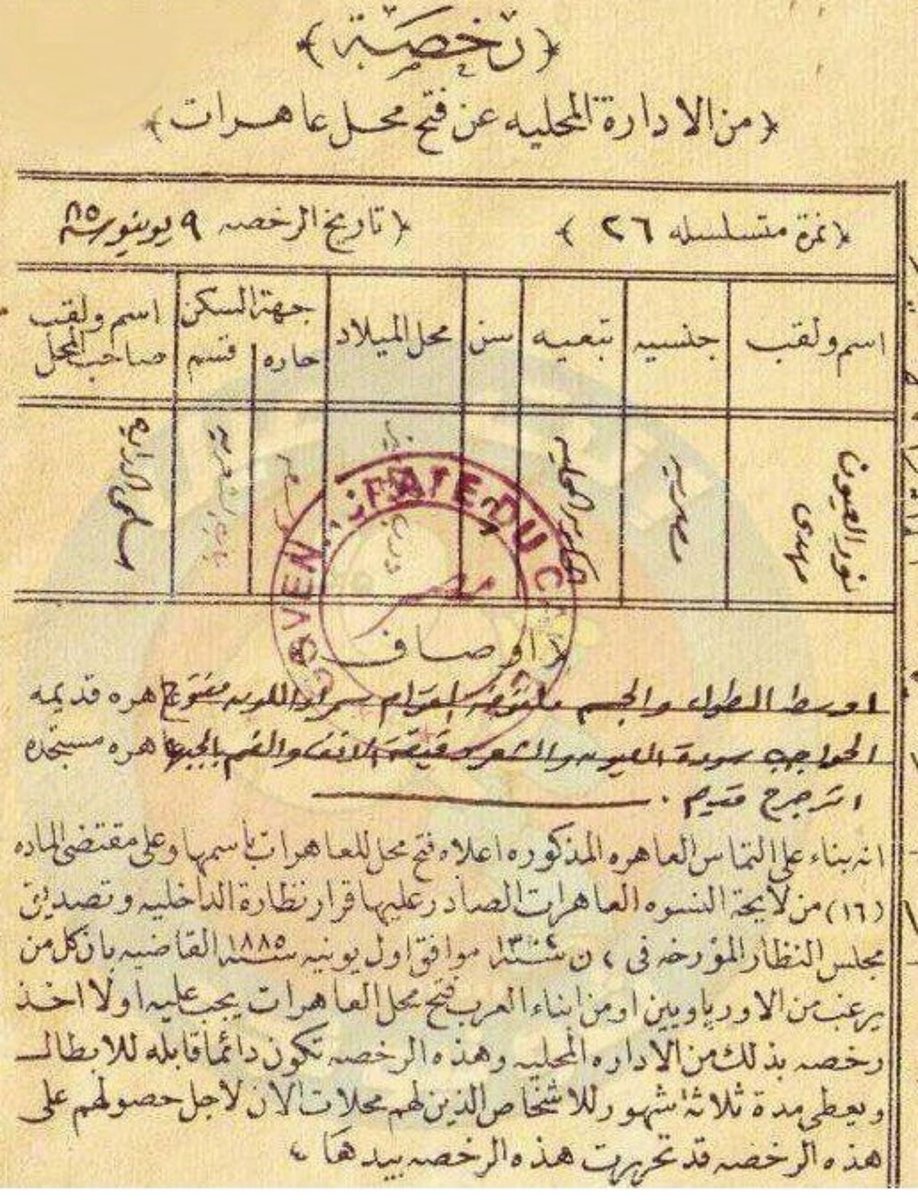 ﴿ رخصة ﴾
﴿ من الادارة المحليه عن فتح محل عاهرات ﴾
﴿ نمرة متسلسله ٢٦ ﴾ ﴿ تاريخ الرخصه ٩ يونيو سنة ٨٥
اسم ولقب جنسيه تبعيه سن محل الميلاد جهة السكن حاره قسم اسم ولقب صاحب المحل
نور العيون مهدى مصريه الحكومه المحليه درب
GOUVERNORAT DU CAIRE
﴿ اوصاف
اوسط الطول والجسم القوام اللون عاهره قديمه
الحواجب سودة العيون والشعر الانف والفم عاهره مستجده
قديم .
انه بناء على التماس العاهره المذكوره اعلاه فتح محل للعاهرات باسمها وعلى مقتضى الماده
(١٦) من لايحة النسوه العاهرات الصادر عليها قرار نظارة الداخليه وتصديق
مجلس النظار المؤرخه فى ن سنة ١٣٠٢ موافق اول يونيه سنة ١٨٨٥ القاضيه بان كل من
يرغب من الاورباويين او من ابناء العرب فتح محل العاهرات يجب عليه اولا اخذ
رخصه بذلك من الاداره المحليه وهذه الرخصه تكون دائما قابله للابطال
ويعطى مدة ثلاثة اشهر للاشخاص الذين لهم محلات الان لاجل حصولهم على
هذه الرخصه قد تحررت هذه الرخصه بيدها